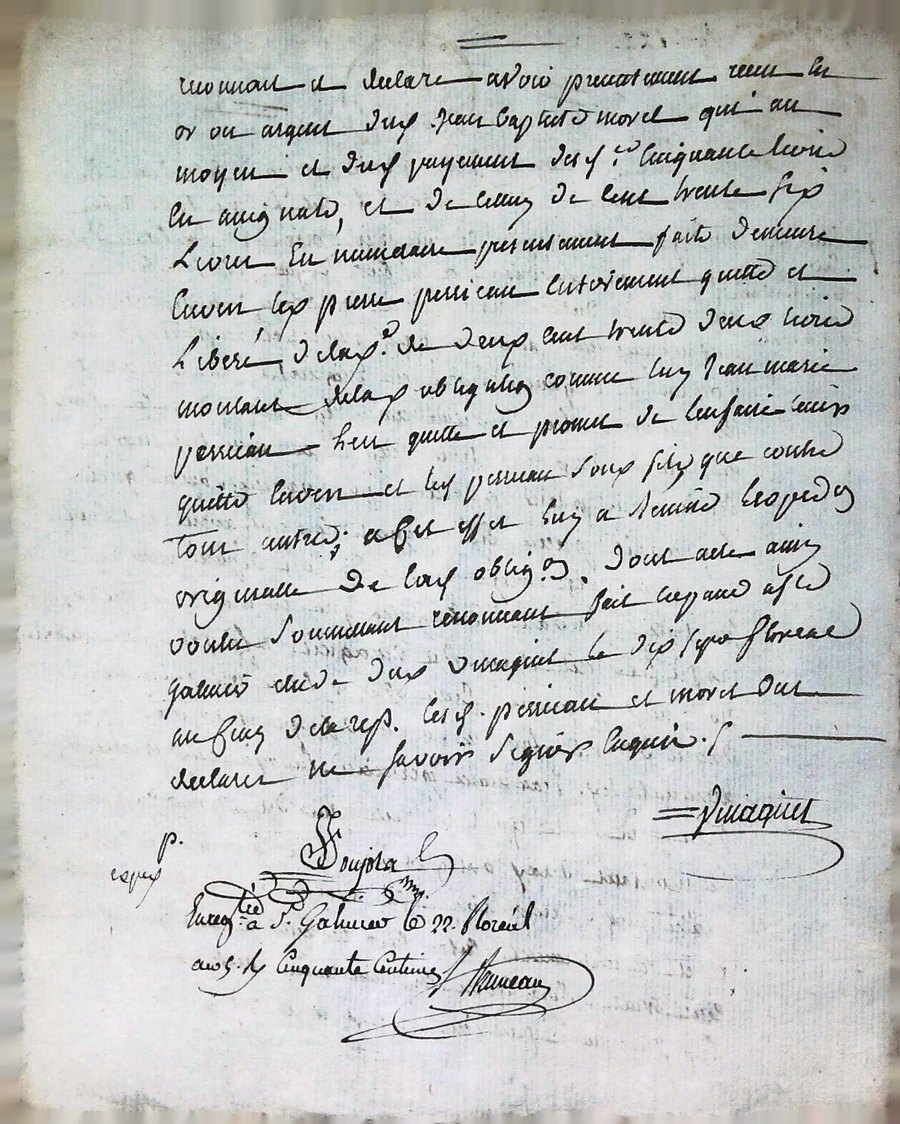 reconnait et declare avoir presentement receu En
or ou argent dud. Jean Baptiste morel qui au
moyen et dud payement desd. Cinquante livres
En assignats, et de celuy de Cent trente six
Livres En numeraire presentement faits demeure
Envers led pierre perricau Entierement quitte et
Liberé, delad. de deux cent trente deux livres
montant delad obligation comme luy Jean marie
perricau Len quitte et promet de Len faire tenir
quitte Envers et led perricau Son fils que contre
Tout autre; a Cet effet luy a Remis Lexped.on
originalle De lad oblig.on. dont acte ainsy
voulu Soumettant renonceant fait Et passé a St
galmier Etude dud vmaguet Le dix sept floreal
an Cinq dela rep. Lesd. perricau et morel ont
declaré ne Savoir Signer Enquis./.
Vmaguet
p.
exped
Enregistré a St. Galmier le 22 floréal
an 5. Cinquante Centimes